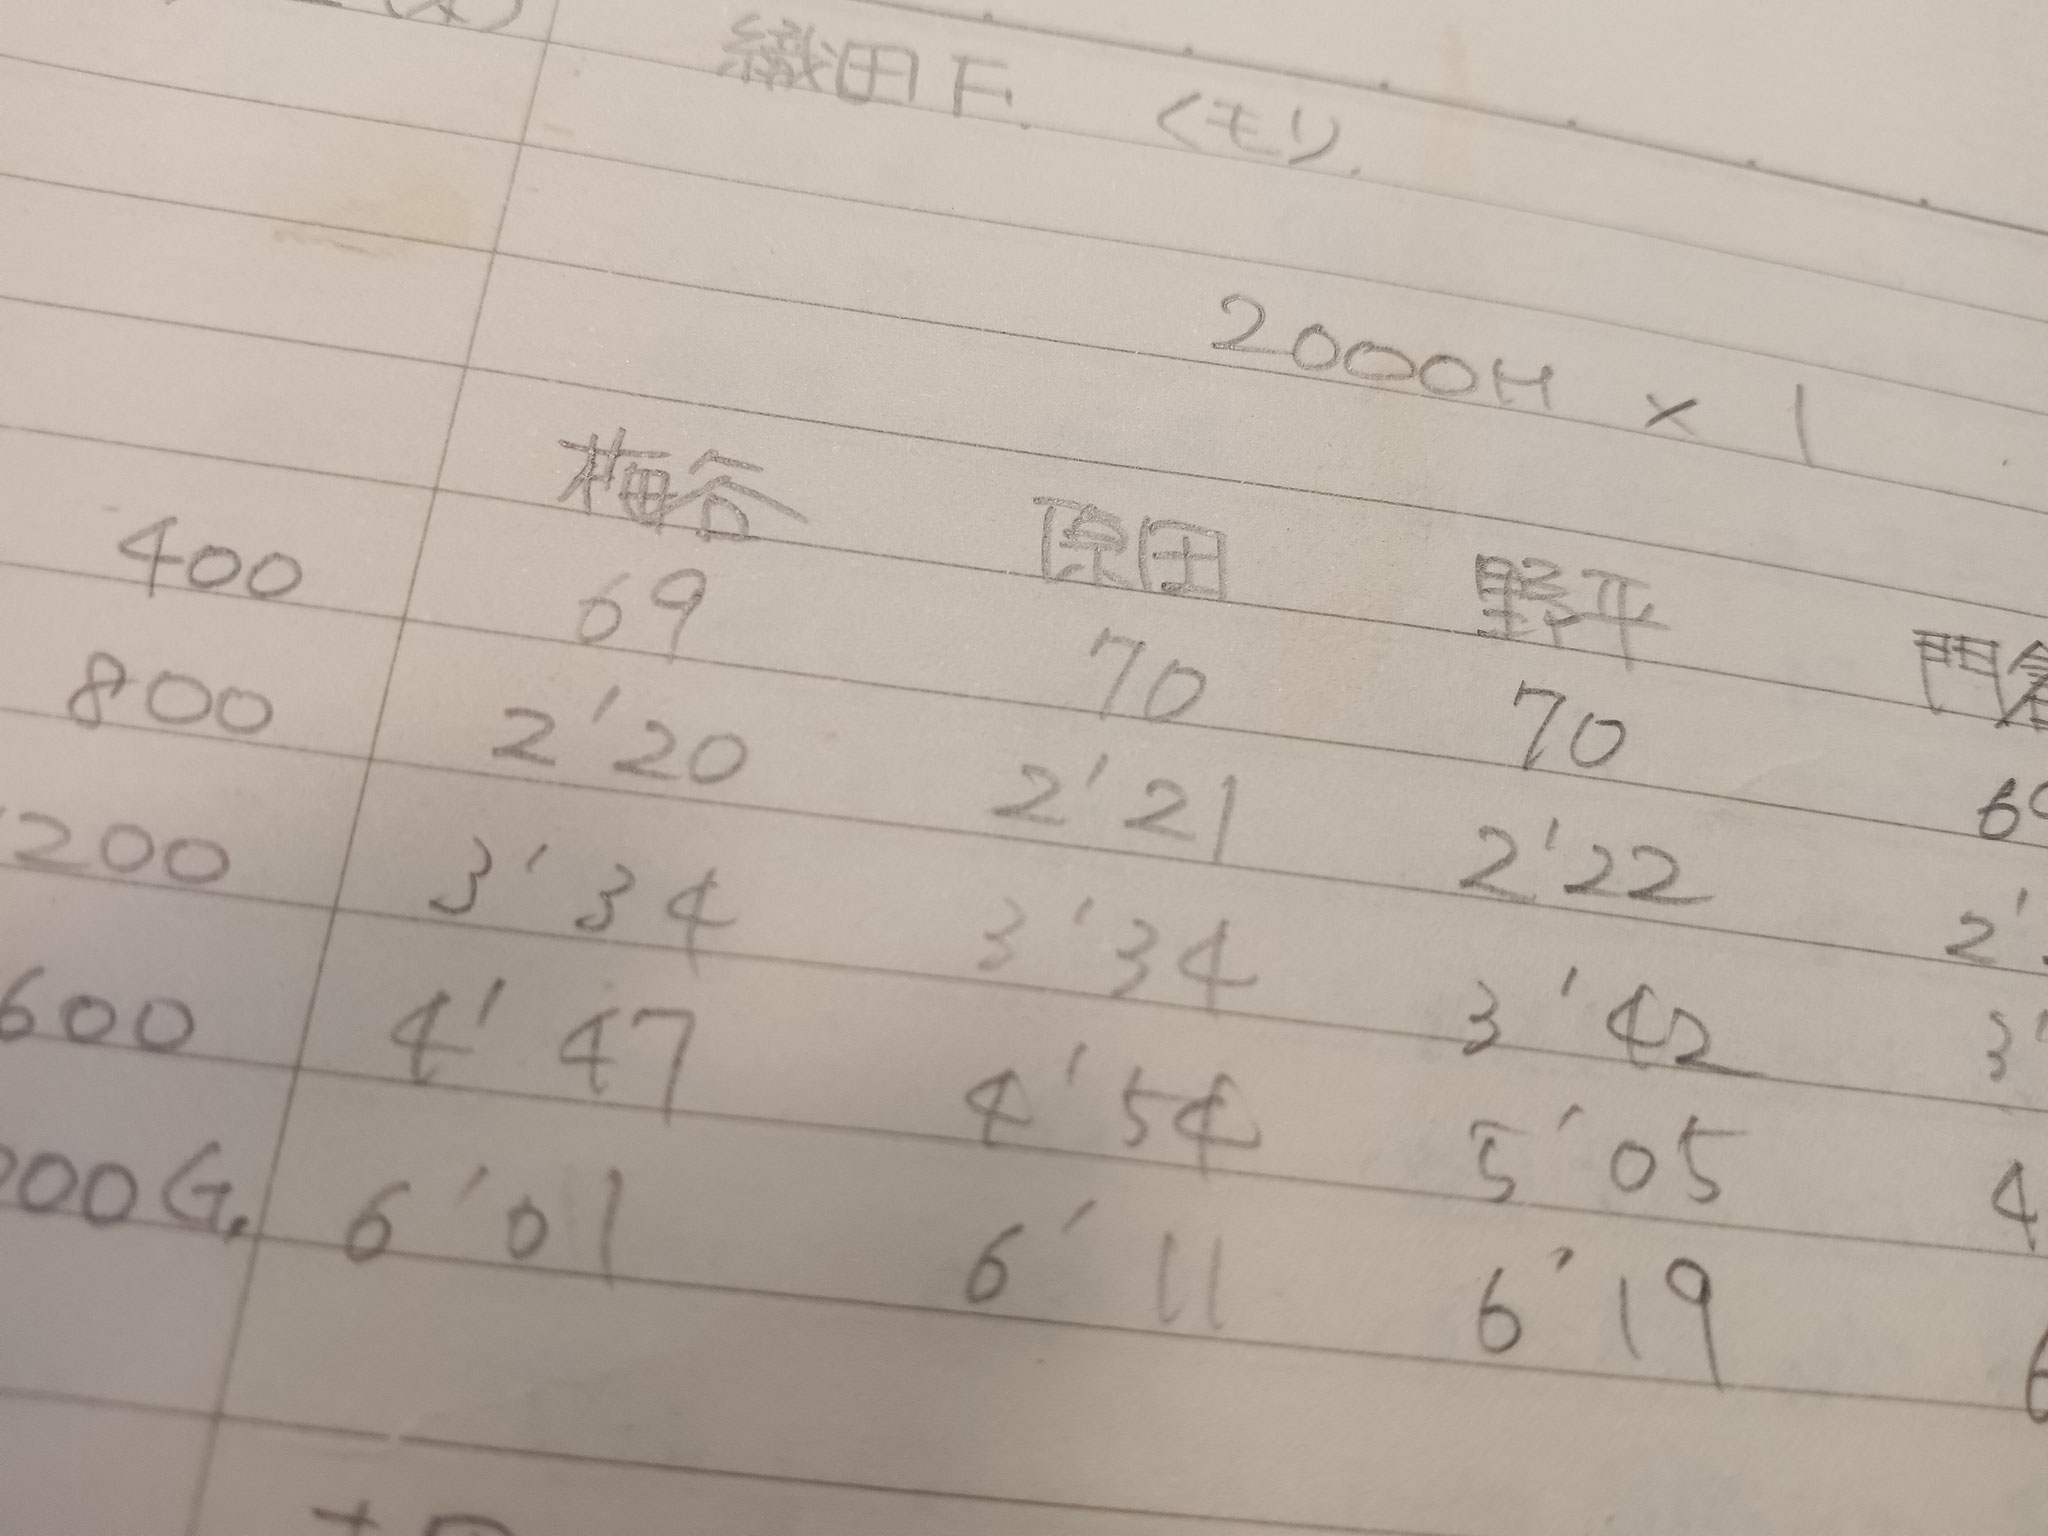 織田F. くモリ.
2000H × 1
梅谷 原田 野平 門倉
400 69 70 70 69
800 2'20 2'21 2'22 2'
200 3'34 3'34 3'42 3'
600 4'47 4'54 5'05 4
000G. 6'01 6'11 6'19 6